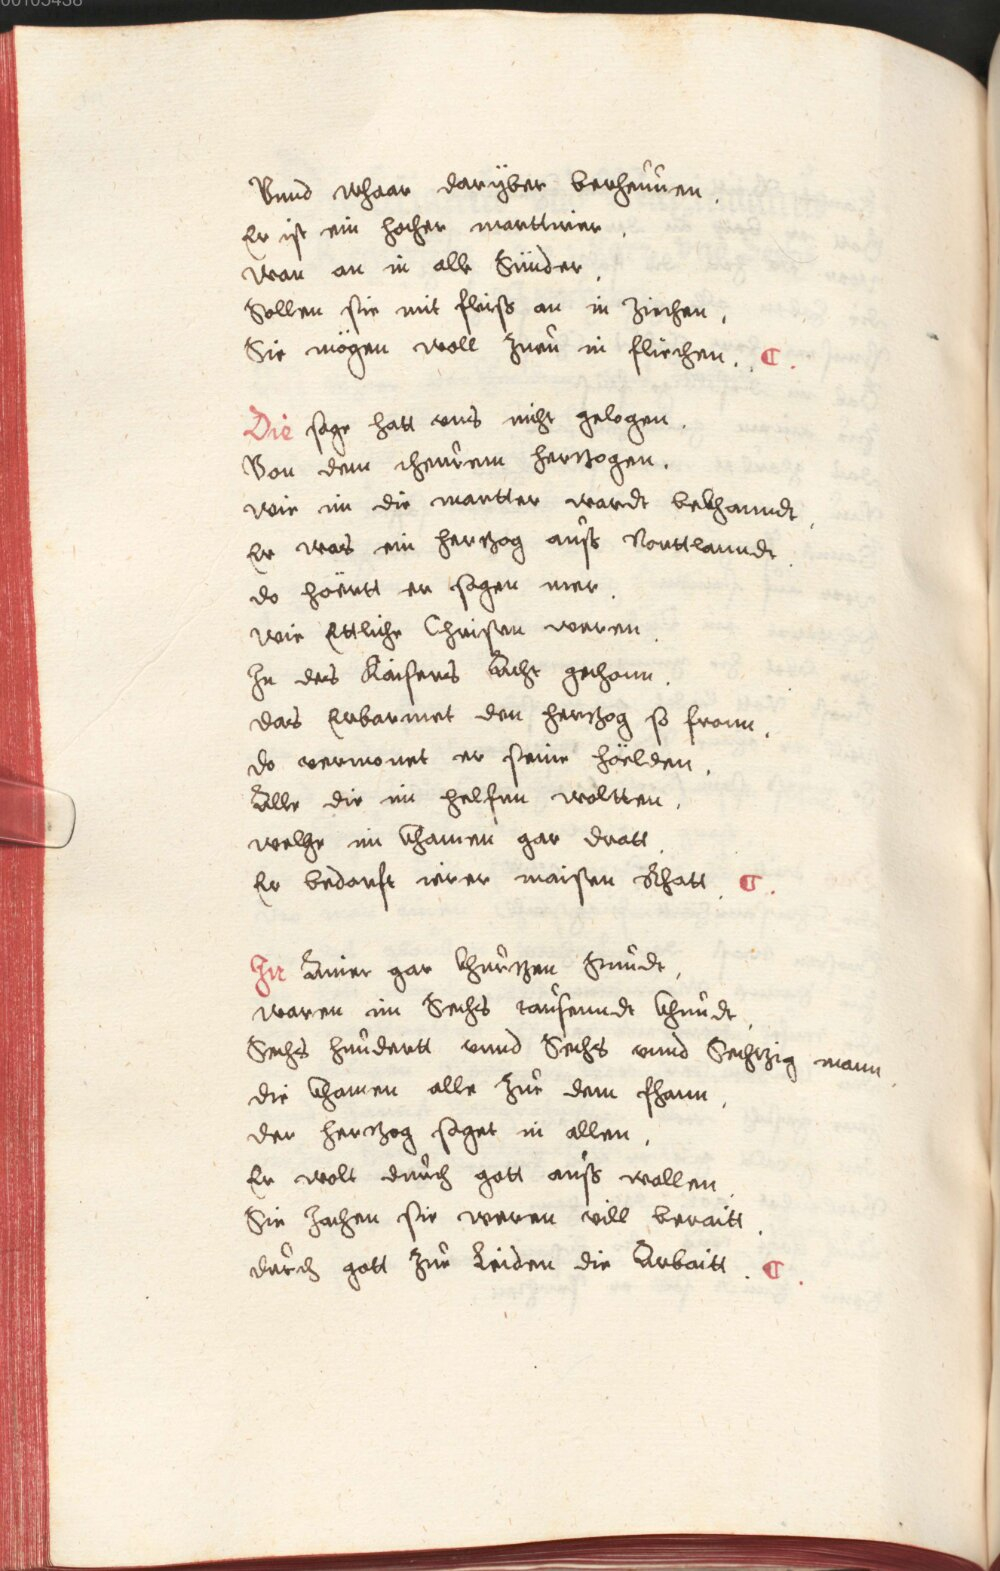 Vnnd whaar darÿber berhennen.
Er ist ein hocher marttirer.
wan an in alle Sünder,
Sollen sie mit fleiss an in Ziechen,
Sie mögen woll Zueu in fliechen. C.
Die sage hatt vns nicht gelogen.
Von dem theurem herzogen.
wie im die martter wardt bekhanndt,
Er was ein herzog auss Norttlanndt.
do hoërtt er sagen mer.
wie Ettliche Christen weren.
In des Kaisers Acht gethonn.
das Erbarmet den herzog so fronn,
do vermonet er seine höelden.
Alle die im helfen woltten,
welche im khamen gar dratt.
Er bedarft irer maisten Rhatt. C.
In Ainer gar khurzen Stundt,
waren im Sechs tausenndt khundt,
Sechs hundertt vnnd Sechs vnnd Sechtzig mann.
die khamen alle Zue dem fhann,
der herzog saget in allen,
Er wolt durch gott auss wallen
Sie Jachen sie weren vill beraitt.
durch gott Zue Leiden die Arbaitt. C.